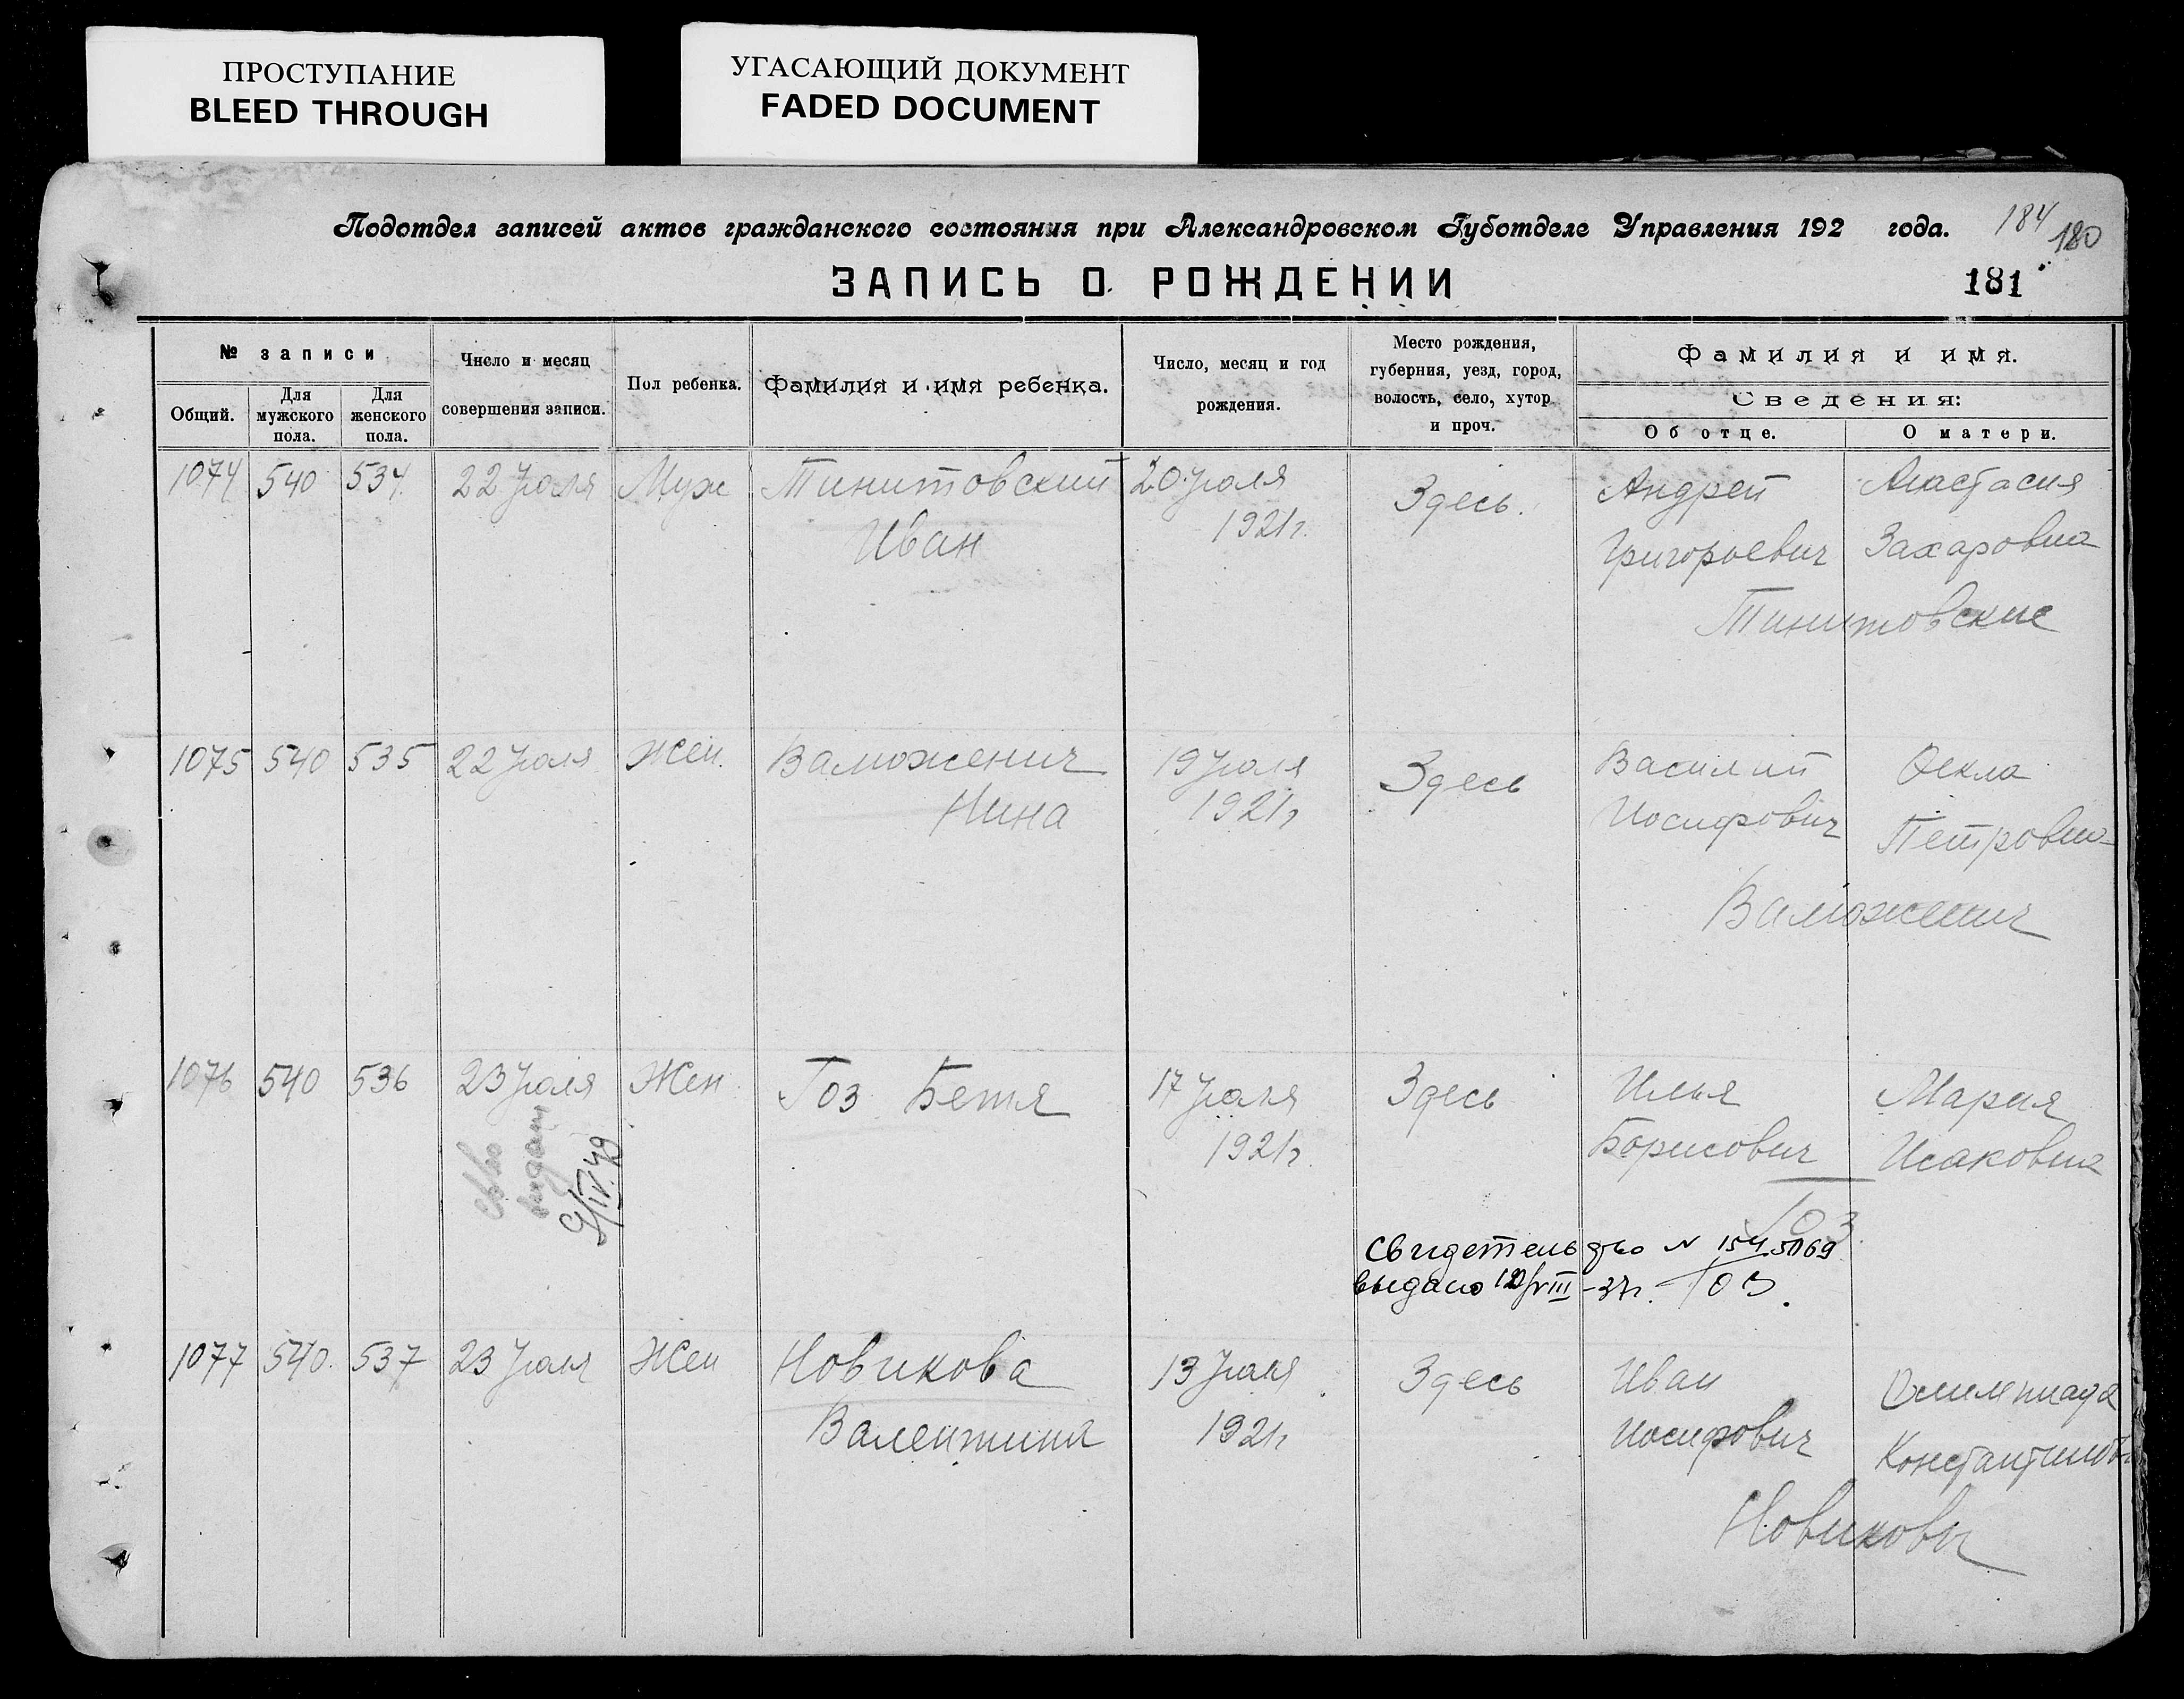 ПРОСТУПАНИЕ
BLEED THROUGH
УГАСАЮЩИЙ ДОКУМЕНТ
FADED DOCUMENT
Подотдел записей актов гражданского состояния при Александровском Губотделе Управления 192 года.
184
180
ЗАПИСЬ О РОЖДЕНИИ
181
№ записи
Общий.
Для мужского пола.
Для женского пола.
Число и месяц совершения записи.
Пол ребенка.
Фамилия и имя ребенка.
Число, месяц и год рождения.
Место рождения, губерния, уезд, город, волость, село, хутор и проч.
Фамилия и имя.
Сведения:
Об отце.
О матери.
1074 540 534 22 Июля Муж Тинитовский 20 Июля Здесь. Андрей Анастасия
Иван 1921г. Григорьевич Захаровна
Тинитовские
1075 540 535 22 Июля Жен.Ваможенич 19 Июля Здесь Василий Фекла
Нина 1921г Иосифович Петровна
Ваможенич
1076 540 536 23 Июля Жен Гоз Бетя 17 Июля Здесь Илья Мария
1921г. Борисович Исаковна
Гоз
выдан
9/IV.49
Свидетельство N 154.5069
выдано VIII-37г. Гоз.
1077 540. 537 23 Июля Жен Новикова 13 Июля Здесь Иван Олимпиада
Валентина 1921г Иосифович
Новиковы